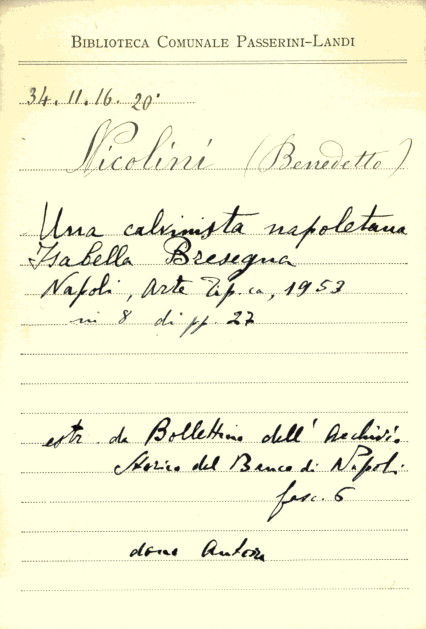 BIBLIOTECA COMUNALE PASSERINI-LANDI
34. 11. 16. 20'
Nicolini (Benedetto)
Una calvinista napoletana
Isabella Bresegna
Napoli, Arte Tip.ca, 1953
in 8 di pp. 27
estr. da Bollettino dell' Archivio
Storico del Banco di Napoli
fasc. 6
dono Autore